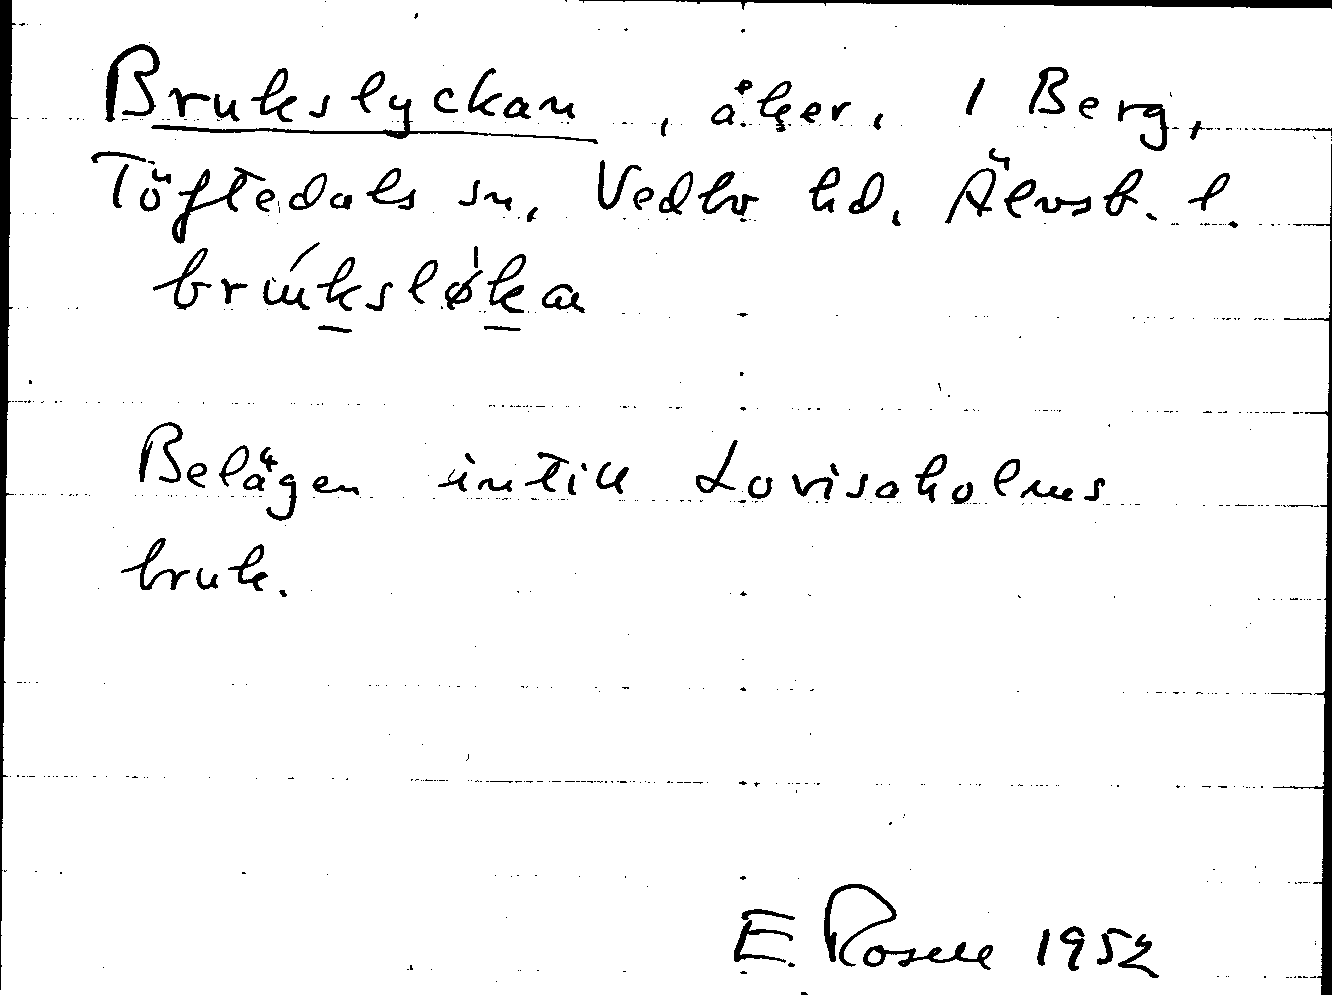 Brukslyckan, åker, 1 Berg,
Töftedals sn, Vedbo hd, Älvsb. l.
brúk̲sløk̲a
Belägen intill Lovisaholms
bruk.
E. Rosell 1952